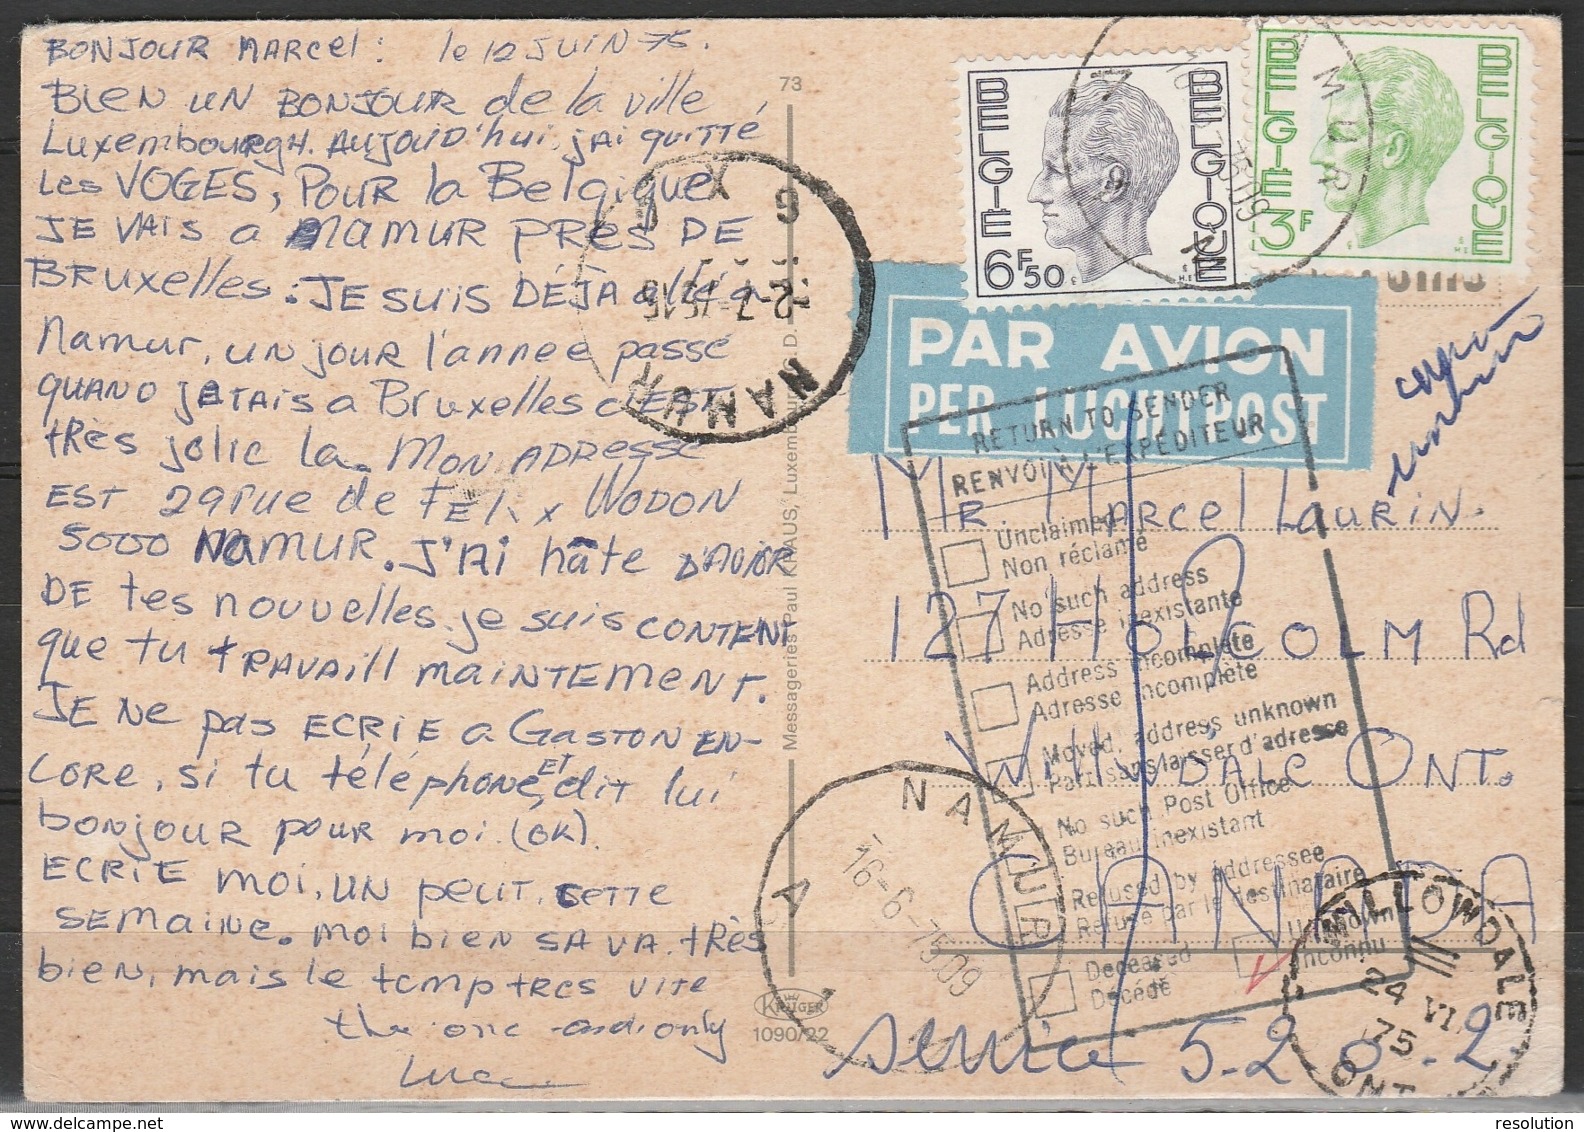 BONJOUR MARCEL : le 12 JUIN 75.
BIEN UN BONJOUR de la ville
Luxembourgh. AUJOUD'hui, j'Ai quitté
Les VOGES, POUR la Belgique
JE VAIS a NAMUR PRES DE
BRUXelles. JE SUIS DÉJA allé a
Namur, UN jOUR l'annee passé
QUAND JETAIS a BRUXelles C'EST
tRès jolie la. MON ADRESSE
EST 29 rue de FELIX WODON
5000 NAMUR. J'AI hâte D'AVOIR
DE tes nouvelles, je suis CONTENT
que tu tRAVAill MAINTEMENT.
JE Ne pas ECRIE a GASTON EN-
CORE, si tu téléphone, ET dit lui
bonjour pour moi. (OK).
ECRIE MOI, UN peut, cette
SEMAINE. MOI bien SA VA. tRès
bien, mais le temp tres vite
the one and only
Luc
73
Messageries Paul KRAUS, Luxembourg
KRÜGER
1090/22
BELGIE BELGIQUE
6F50
BELGIE BELGIQUE
3F
NAMUR
PAR AVION
PER LUCHTPOST
NAMUR
12-7-7515
RETURN TO SENDER
RENVOI À L'EXPÉDITEUR
Unclaimed
Non réclamé
No such address
Adresse inexistante
Address incomplete
Adresse incomplète
Moved, address unknown
Parti sans laisser d'adresse
No such Post Office
Bureau inexistant
Refused by addressee
Refusé par le destinataire
Unknown
Inconnu
Deceased
Décédé
Mr. Marcel Laurin.
127 HOLCOLM Rd
Willowdale ONT.
CANADA
NAMUR
16-6-75 09
WILLOWDALE
24 VI
75
ONT
5-2 0-2
resolution